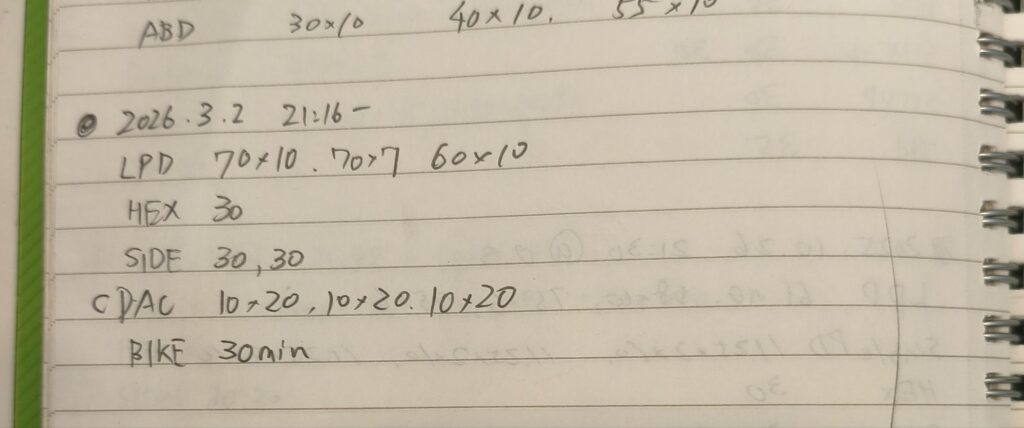 ABD 30×10 40×10. 55×10
2026.3.2 21:16-
LPD 70×10. 70×7 60×10
HEX 30
SIDE 30, 30
CDAC 10×20, 10×20. 10×20
BIKE 30min